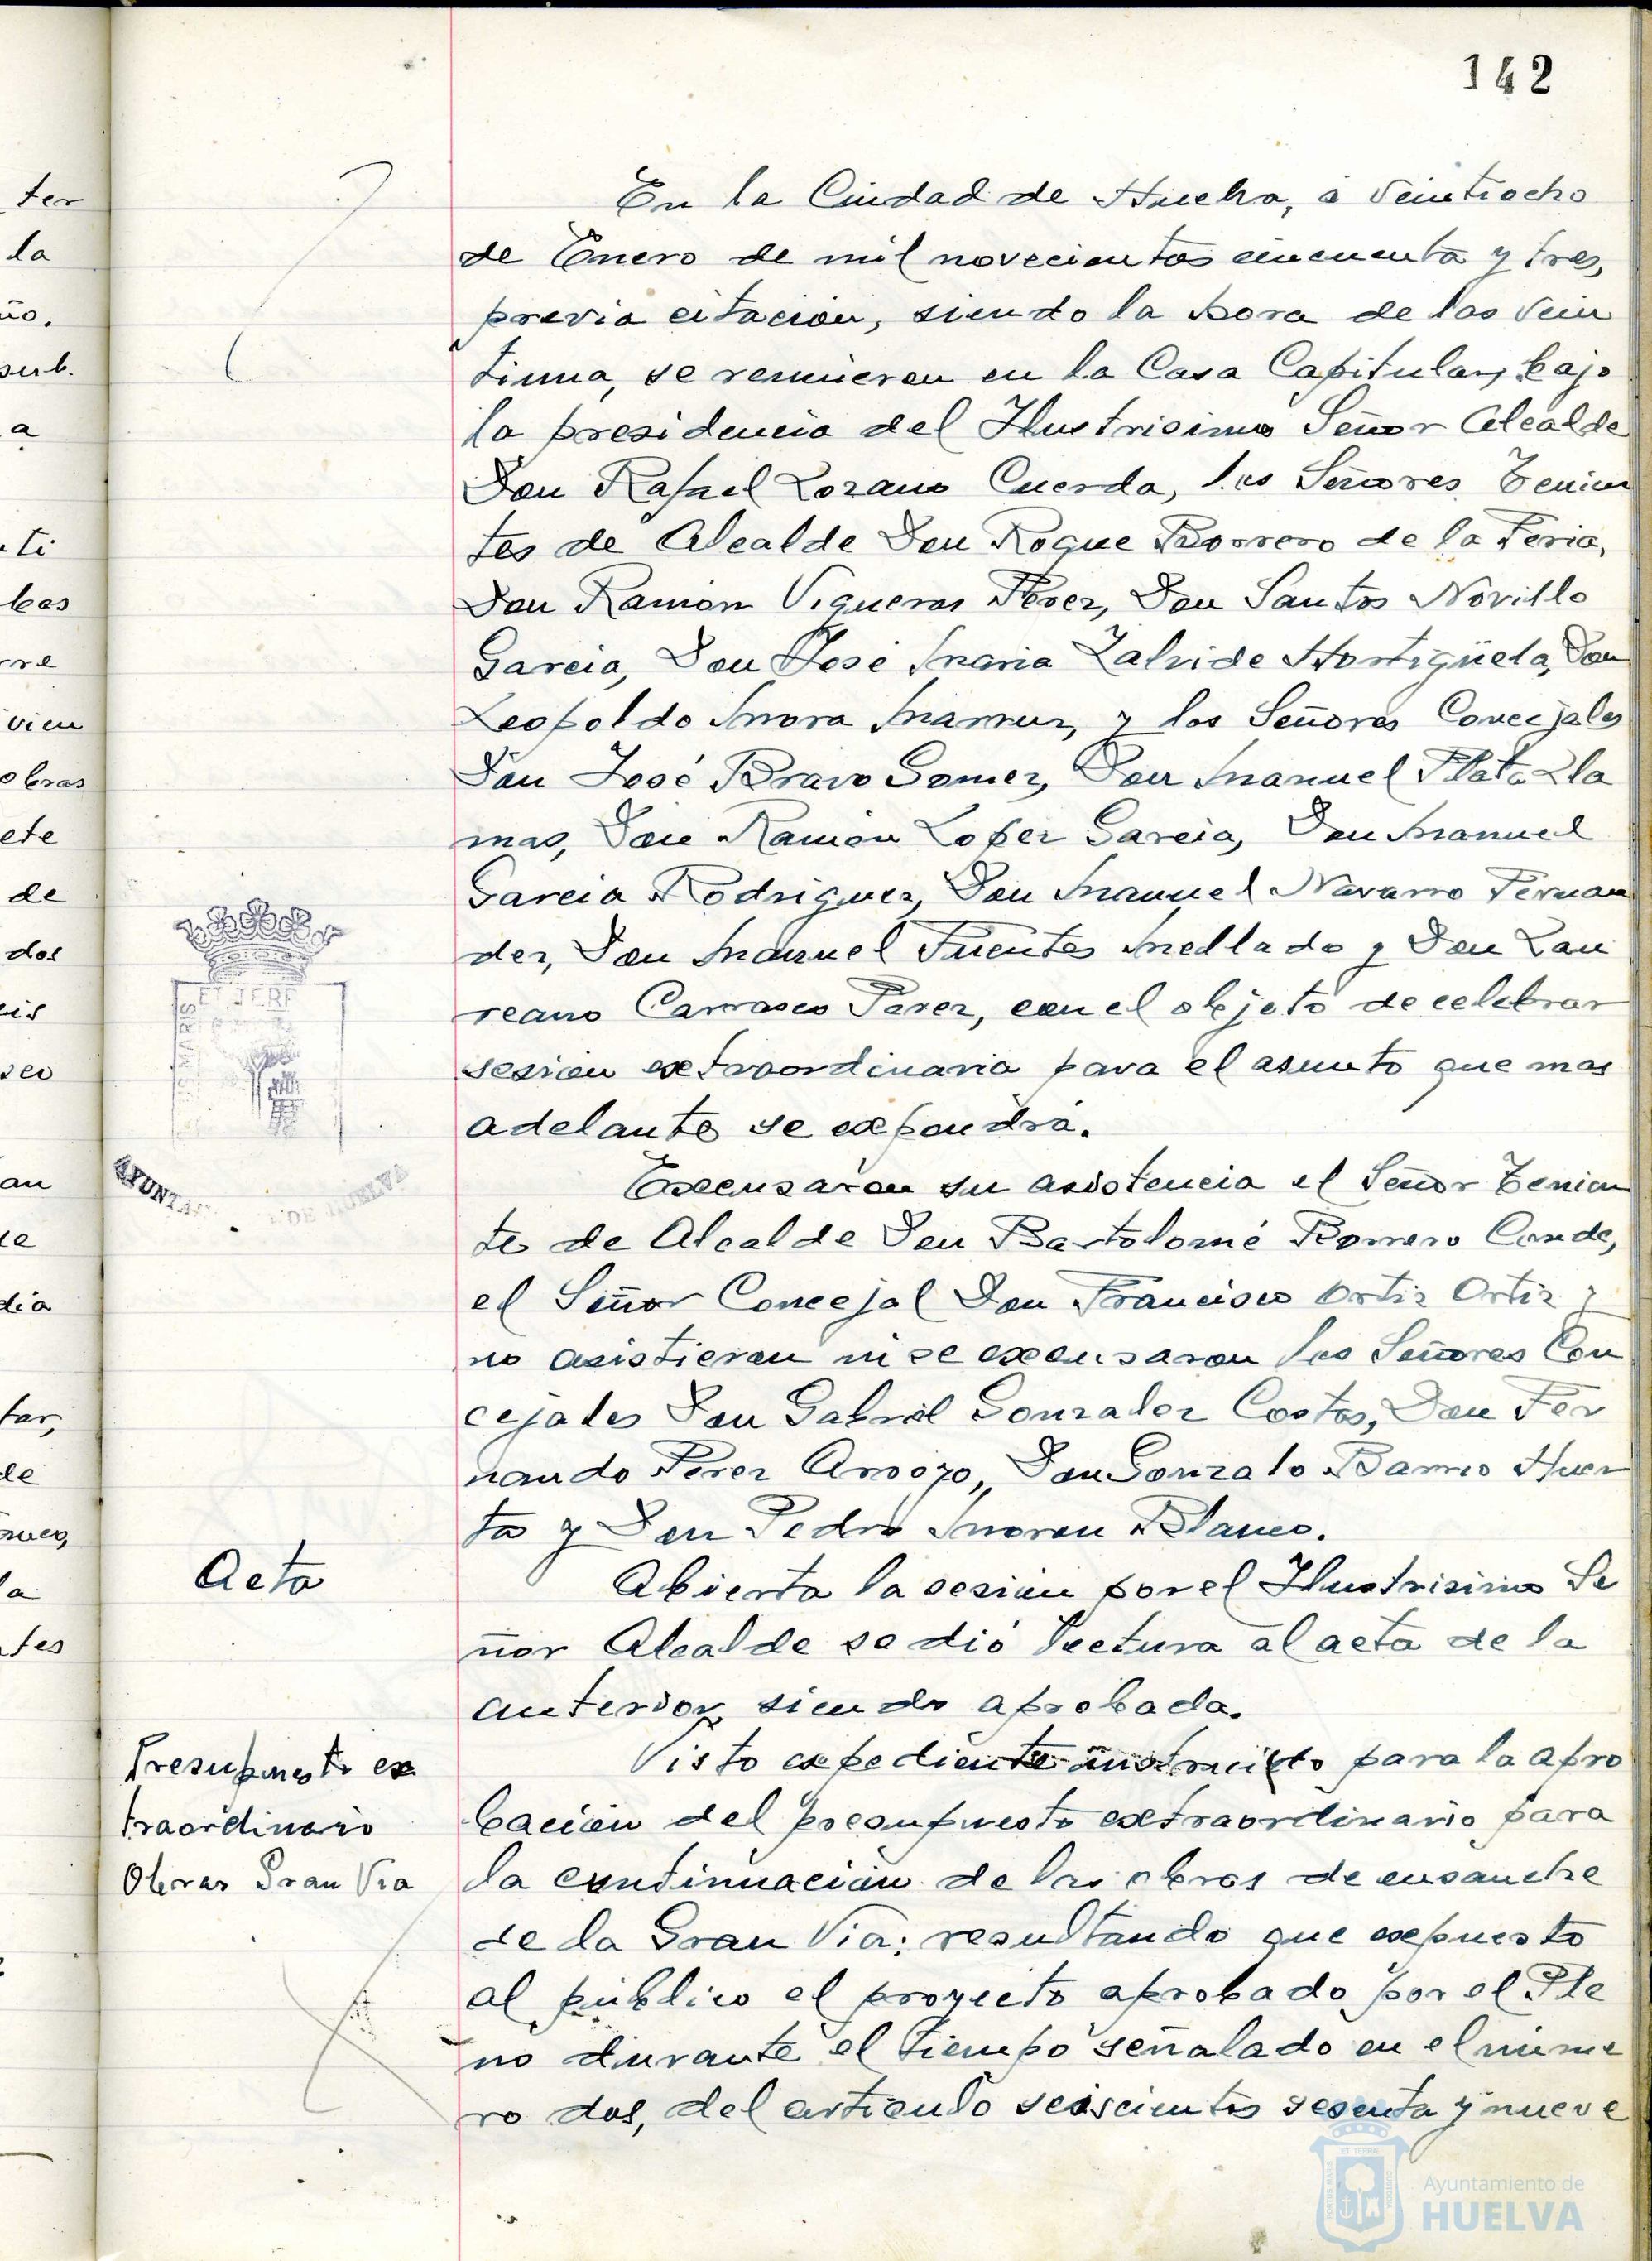 142
En la Ciudad de Huelva, á veintiocho
de Enero de mil novecientos cincuenta y tres,
previa citación, siendo la hora de las vein
tiuna, se reunieron en la Casa Capitular, bajo
la presidencia del Ilustrisimo Señor Alcalde
Don Rafael Lozano Cuerda, los Señores Tenien
tes de Alcalde Don Roque Borrero de la Feria,
Don Ramón Vigueras Pérez, Don Santos Novillo
Garcia, Don José Maria Zalvide Hortigüela, Don
Leopoldo Mora y los Señores Concejales
Don José Bravo Gomez, Don Manuel Plata Lla
mas, Don Ramón Lopez Garcia, Don Manuel
Garcia Rodriguez, Don Manuel Navarro Fernan
dez, Don Manuel Fuentes Mellado y Don Lau
reano Carrasco Perez, con el objeto de celebrar
sesión extraordinaria para el asunto que mas
adelante se expondrá.
Excusaron su asistencia el Señor Tenien
te de Alcalde Don Bartolomé Romero Conde,
el Señor Concejal Don Francisco Ortiz Ortiz y
no asistieron ni se excusaron los Señores Con
cejales Don Gabriel Gonzalez Costas, Don Fer
nando Pérez Arroyo, Don Gonzalo Barrio Huer
ta y Don Pedro Moron Blanco.
Acta
Abierta la sesión por el Ilustrisimo Se
ñor Alcalde se dió lectura al acta de la
anterior, siendo aprobada.
Presupuesto ex
traordinario
Obras Gran Via
Visto expediente instruido para la apro
bación del presupuesto extraordinario para
la continuación de las obras de ensanche
de la Gran Via: resultando que expuesto
al público el proyecto aprobado por el Ple
no durante el tiempo señalado en el núme
ro dos, del articulo seiscientos sesenta y nueve
AYUNTA DE HUELVA
Ayuntamiento de
HUELVA